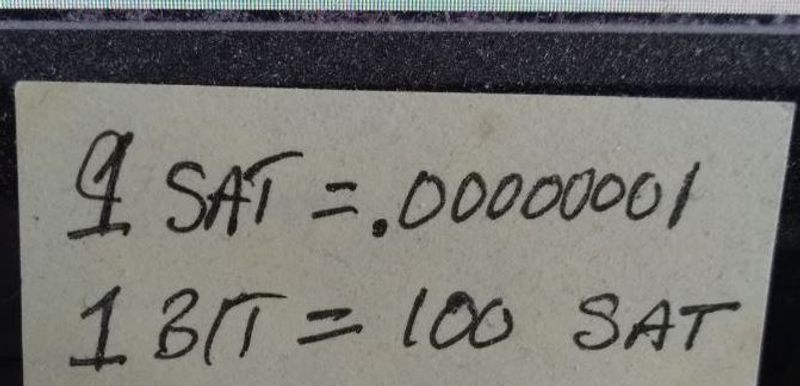 1 SAT = .00000001
1 BIT = 100 SAT